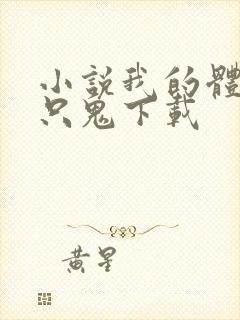 小說我的體
只鬼下載
黃星